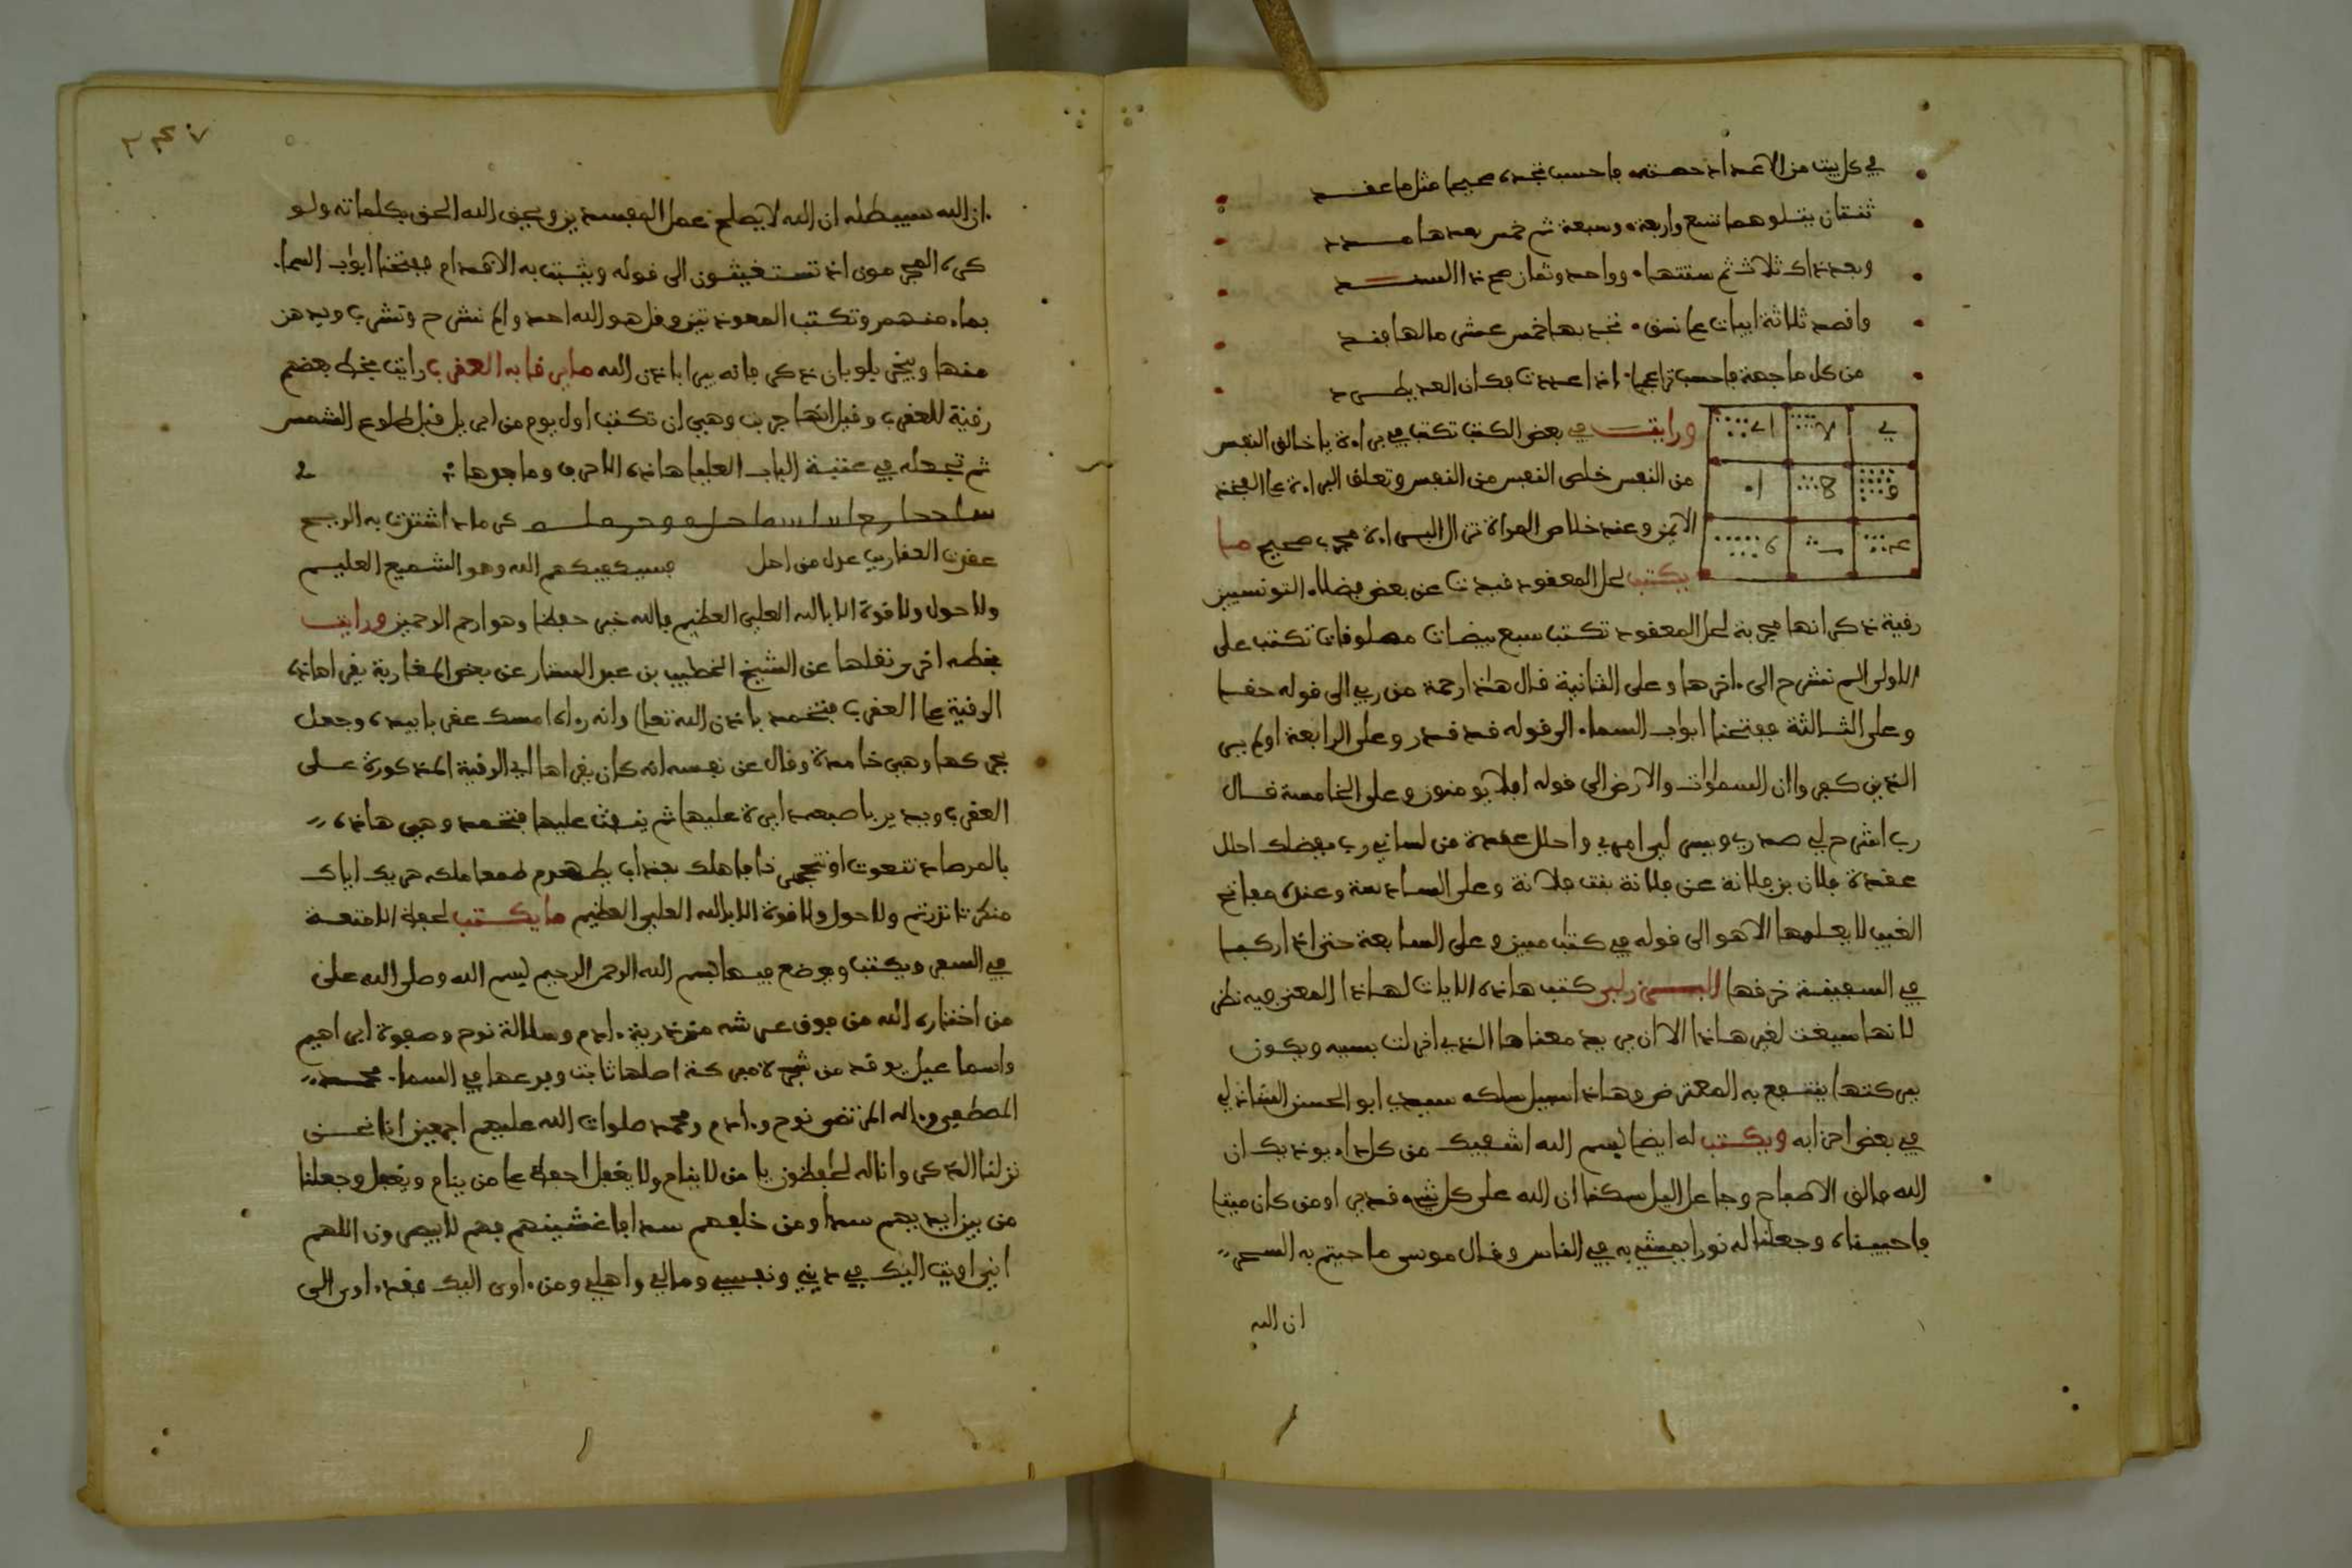 في كل بيت من الاعداد حصته فاحسب تجده صحيحا مثل ما عقد
ثنتان يتلوهما تسع واربعة وسبعة ثم خمس بعدها
وبعد ذاك ثلاث ثم ستتها وواحد وثمان صح ذا السند
واقصد ثلاثة ابيات على نسق تجد بها خمس عشر ما لها فند
من كل ما جهة فاحسب اذا عددت فكان العد يطرد
ورايت في بعض الكتب تكتب في براءة يا خالق النفس
من النفس خلص النفس من النفس وتعلق البراءة على الفخذ
الايمن وعند خلاص المراة تزال البراءة مجرب صحيح ما
يكتب لحل المعقود قيدت عن بعض فضلاء التونسيين
رقية ذكر انها مجربة لحل المعقود تكتب سبع بيضات مصلوقات تكتب على
الاولى الم نشرح الى ءاخرها وعلى الثانية قال هذا رحمة من ربي الى قوله حقا
وعلى الثالثة ففتحنا ابواب السماء الى قوله قد قدر وعلى الرابعة اولم ير
الذين كفروا ان السموات والارض الى قوله افلا يومنون وعلى الخامسة قال
رب اشرح لي صدري ويسر لي امري واحلل عقدة من لساني رب بفضلك احلل
عقدة فلان بن فلانة عن فلانة بنت فلانة وعلى السادسة وعنده مفاتح
الغيب لا يعلمها الا هو الى قوله في كتاب مبين وعلى السابعة حتى اذا ركبا
في السفينة خرقها كتب هاذه الايات لهاذا المعنى فيه نظر
لانها سيقت لغير هاذا الا ان يريد معناها الذي انزلت بسببه ويكون
ببركتها ينتفع به المعترض وهاذا سبيل سلكه سيدي ابو الحسن الشاذلي
في بعض احزابه ويكتب له ايضا بسم الله اشفيك من كل داء يوذيك ان
الله فالق الاصباح وجاعل اليل سكنا ان الله على كل شيء قدير او من كان ميتا
فاحييناه وجعلنا له نورا يمشي به في الناس وقال موسى ما جيتم به السحر
ان الله
ان الله سيبطله ان الله لا يصلح عمل المفسدين ويحق الله الحق بكلماته ولو
كره المجرمون اذ تستغيثون الى قوله ويثبت به الاقدام ففتحنا ابواب السماء
بماء منهمر وتكتب المعوذتين وقل هو الله احد والم نشرح وتشرب ويدهن
منها ويبخر بلوبان ذكر فانه يبرا باذن الله ما يرقا به العقرب رايت بخط بعضهم
رقية للعقرب وقيل انها جربت وهي ان تكتب اول يوم من ابريل قبل طلوع الشمس
ثم تجعله في عتبة الباب العليا هاذه الاحرف وما جوها
كرماد اشتدت به الريح
عقدت العقارب فسيكفيكهم الله وهو السميع العليم
ولا حول ولا قوة الا بالله العلي العظيم فالله خير حفظا وهو ارحم الرحمين ورايت
بخطه اخرى نقلها عن الشيخ الخطيب بن عبد الستار عن بعض المغاربة يقرا هاذه
الرقية على العقرب فتخمد باذن الله تعلى وانه رءاه امسك عقربا بيده وجعل
يحركها وهي خامدة وقال عن نفسه انه كان يقراها اي الرقية المذكورة على
العقرب ويدير باصبعه ابرة عليها ثم ينفث عليها فتخمد وهي هاذه
ولا حول ولا قوة الا بالله العلي العظيم ما يكتب لحفظ الامتعة
في السفر ويكتب ويوضع فيها بسم الله الرحمن الرحيم بسم الله وصلى الله على
من اختاره الله من فوق عرشه من ذرية ءادم وسلالة نوح وصفوة ابراهيم
واسماعيل يوقد من شجرة مبركة اصلها ثابت وفرعها في السماء محمد
المصطفى وءاله المرتضى نوح وءادم ومحمد صلوات الله عليهم اجمعين انا نحن
نزلنا الذكر وانا له لحفظون يا من لا ينام ولا يغفل احفظ على من ينام ويغفل وجعلنا
من بين ايديهم سدا ومن خلفهم سدا فاغشينهم فهم لا يبصرون اللهم
اني اويت اليك في ديني ونفسي ومالي واهلي ومن ءاوى اليك فقد ءاوى الى